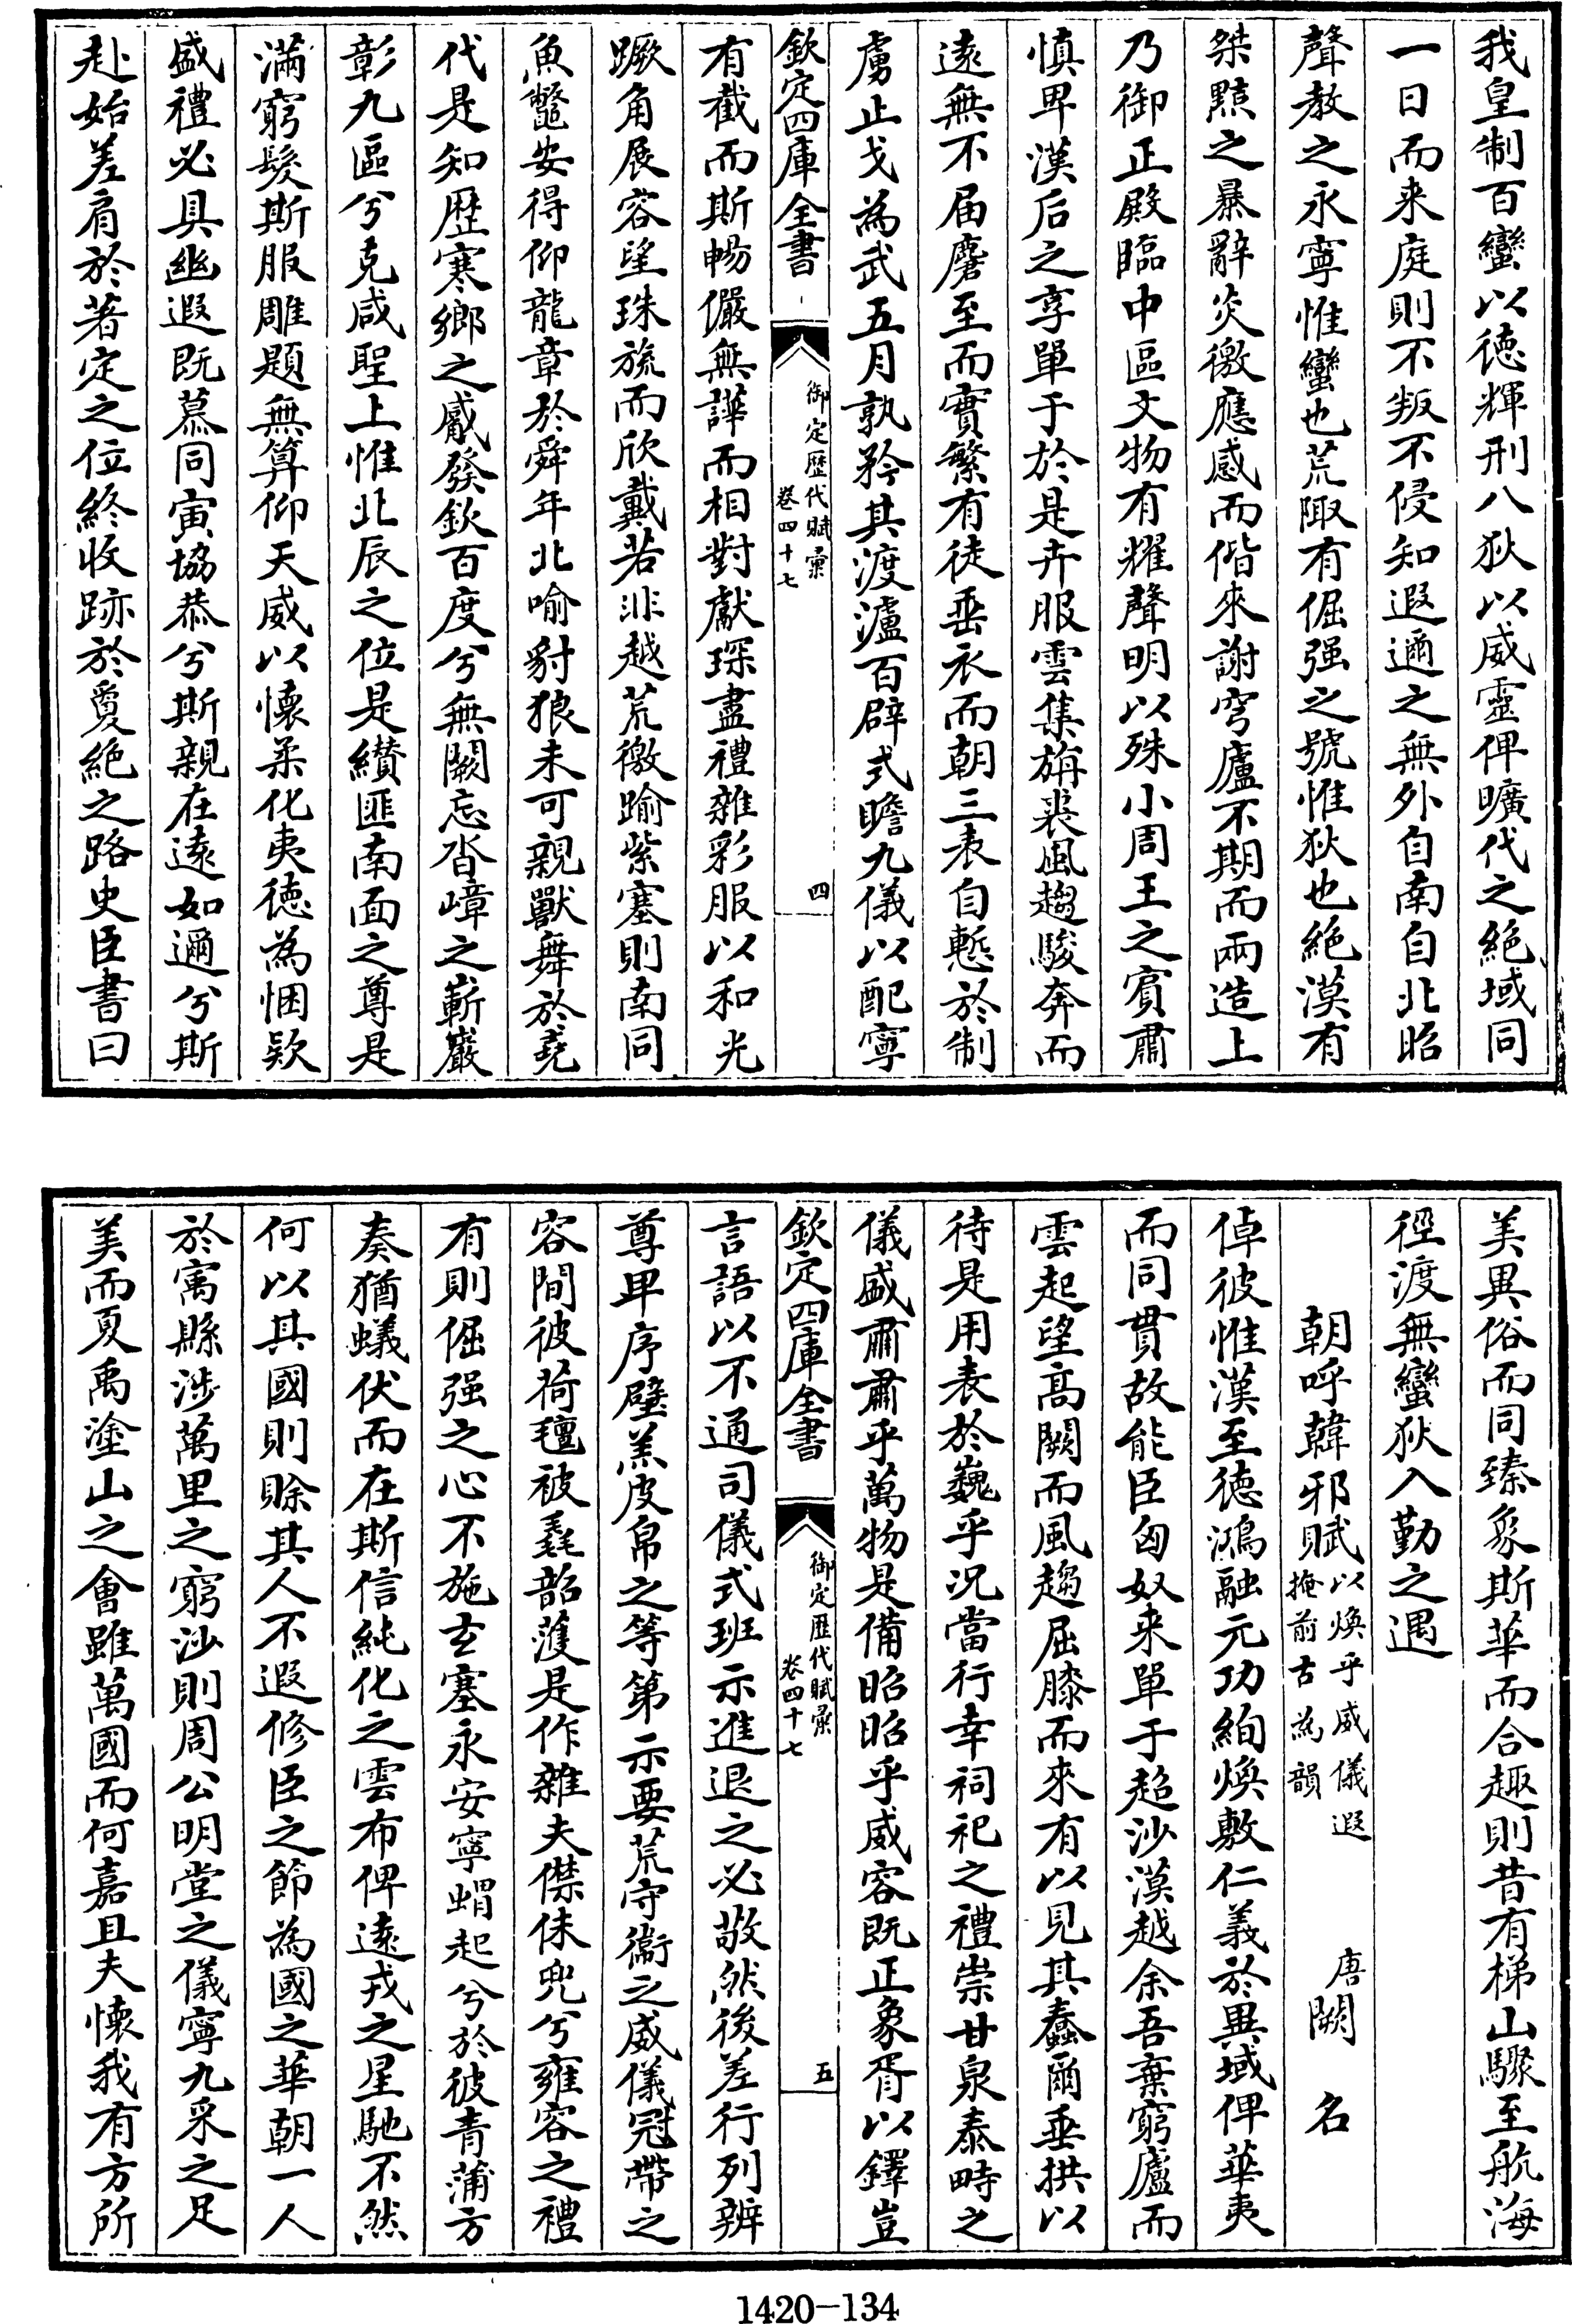 我皇制百蠻以徳輝刑八狄以威靈俾曠代之絶域同
一日而来庭則不叛不侵知遐邇之無外自南自北昭
聲教之永寧惟蠻也荒陬有倔强之號惟狄也絶漠有
桀黠之暴辭炎徼應感而偕來謝穹廬不期而兩造上
乃御正殿臨中區文物有耀聲明以殊小周王之賓肅
慎卑漢后之享單于於是卉服雲集旃裘風趨駿奔而
遠無不届麏至而實繁有徒垂衣而朝三表自慙於制
虜止戈為武五月孰矜其渡瀘百辟式瞻九儀以配寧
欽定四庫全書
御定歴代賦彙
卷四十七
四
有截而斯暢儼無譁而相對獻琛盡禮雜彩服以和光
蹶角展容望珠旒而欣戴若非越荒徼踰紫塞則南同
魚鼈安得仰龍章於舜年北喻豺狼未可親獸舞於堯
代是知歴寒鄉之觱發欽百度兮無闕忘沓嶂之嶄巖
彰九區兮克咸聖上惟北辰之位是纘匪南面之尊是
滿窮髮斯服雕題無算仰天威以懷柔化夷徳為悃欵
盛禮必具幽遐既慕同寅協恭兮斯親在遠如邇兮斯
赴始差肩於著定之位終收跡於敻絶之路史臣書曰
美異俗而同臻象斯華而合趣則昔有梯山驟至航海
徑渡無蠻狄入勤之遇
朝呼韓邪賦以煥乎威儀遐掩前古為韻 唐闕名
倬彼惟漢至徳鴻融元功絢煥敷仁義於異域俾華夷
而同貫故能臣匈奴来單于超沙漠越余吾棄窮廬而
雲起望高闕而風趨屈膝而來有以見其蠢爾垂拱以
待是用表於巍乎况當行幸祠祀之禮崇甘泉泰畤之
儀盛肅肅乎萬物是備昭昭乎威容既正象胥以鐸豈
欽定四庫全書
御定歴代賦彙
卷四十七
五
言語以不通司儀式班示進退之必敬然後差行列辨
尊卑序璧羔皮帛之等第示要荒守衞之威儀冠帶之
容間彼荷氊被毳韶濩是作雜夫僸侏兜兮雍容之禮
有則倔强之心不施玄塞永安寧蝟起兮於彼青蒲方
奏猶蟻伏而在斯信純化之雲布俾遠戎之星馳不然
何以其國則賒其人不遐修臣之節為國之華朝一人
於寓縣涉萬里之窮沙則周公明堂之儀寧九采之足
美而夏禹塗山之會雖萬國而何嘉且夫懷我有方所
1420-134